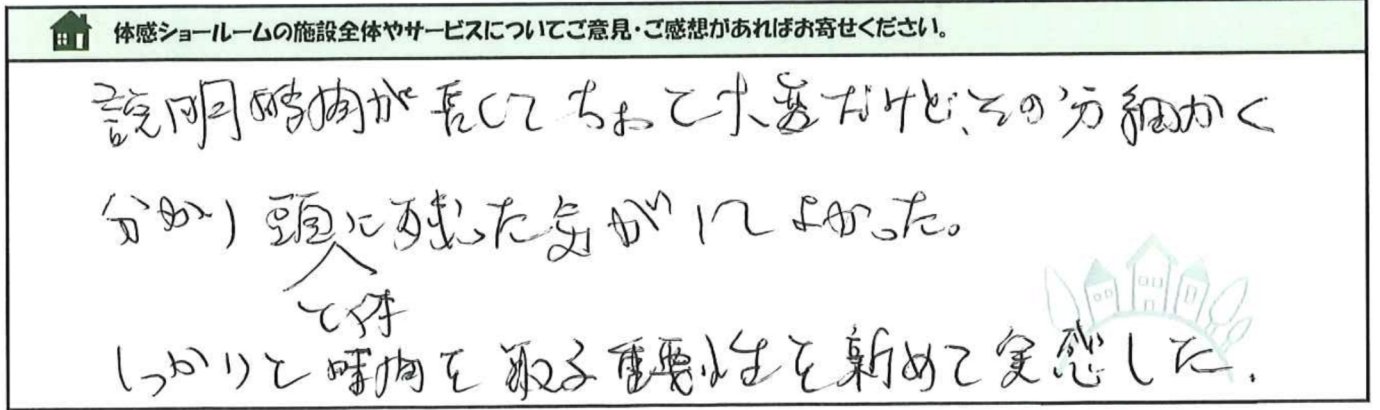 体感ショールームの施設全体やサービスについてご意見・ご感想があればお寄せください。
説明時間が長くてちょっと大変だけど、その分細かく
分かり頭に残った気がしてよかった。
と体
しっかりと時間を取る重要性を新めて実感した。